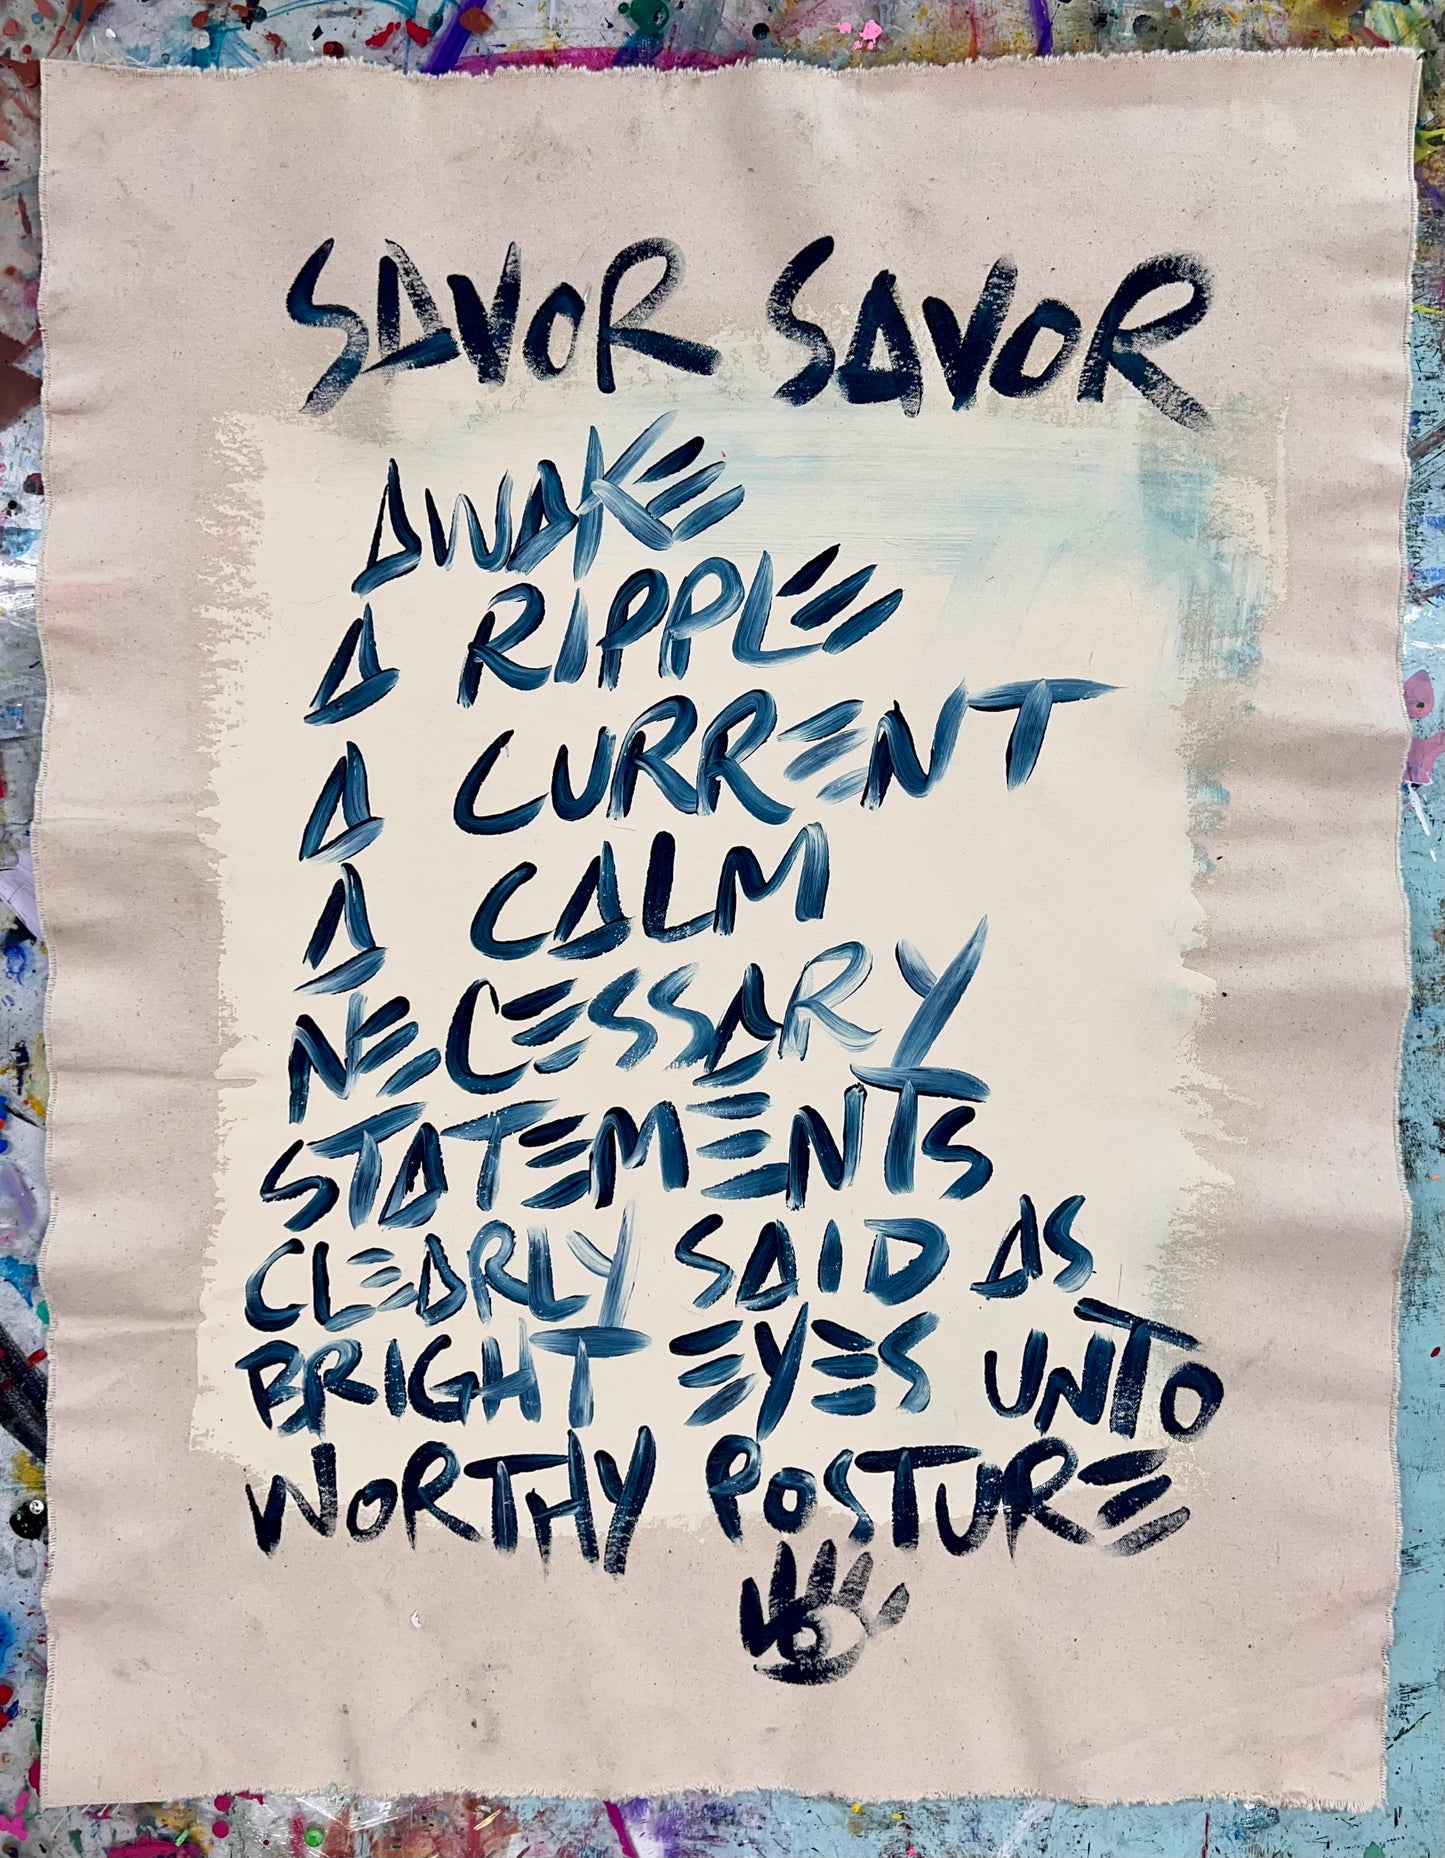 SAVOR SAVOR
AWAKE
A RIPPLE
A CURRENT
A CALM
NECESSARY
STATEMENTS
CLEARLY SAID AS
BRIGHT EYES UNTO
WORTHY POSTURE